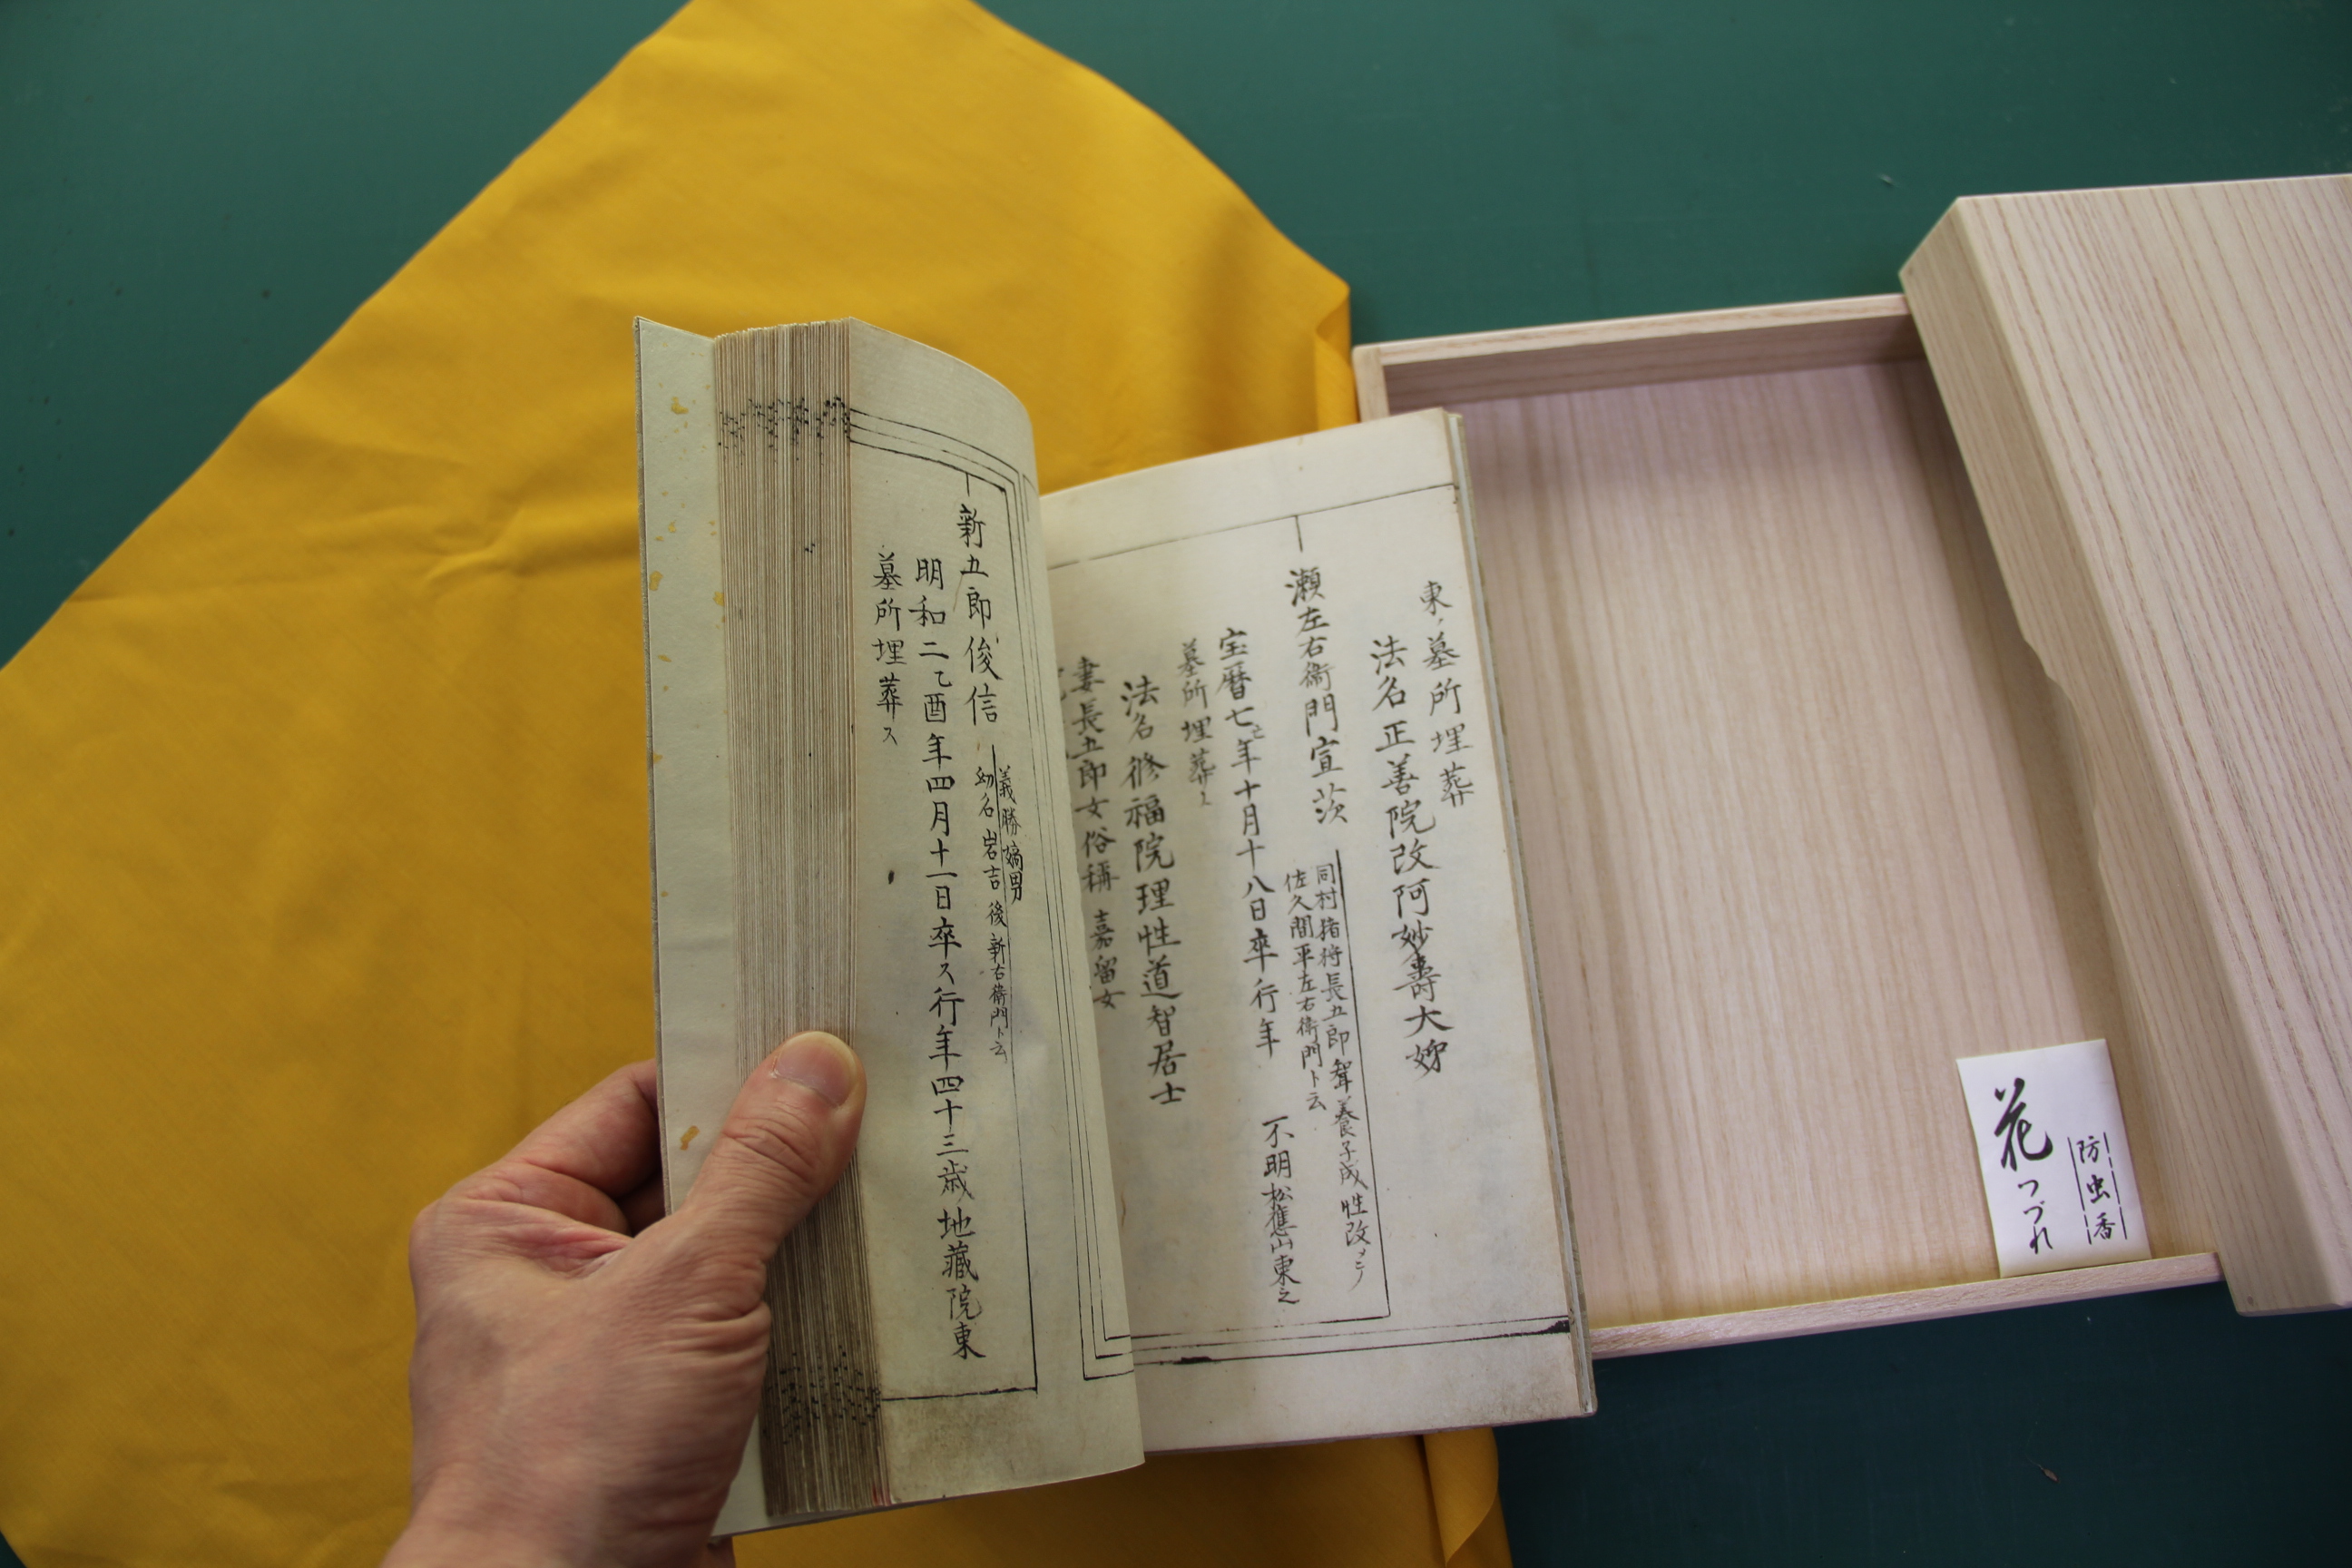 東ノ墓所埋葬
法名正善院改阿妙壽大姉
瀬左右衛門宣茨
同村猪狩長五郎聟養子成性改メテ
佐久間平左右衛門ト云
宝暦七丑年十月十八日卒行年 不明松應山東之
墓所埋葬ス
法名修福院理性道智居士
妻長五郎女俗稱 嘉留女
新五郎俊信
義勝嫡男
幼名岩吉後新右衛門ト云
明和二乙酉年四月十一日卒ス行年四十三歳地藏院東
墓所埋葬ス
防虫香
花つづれ